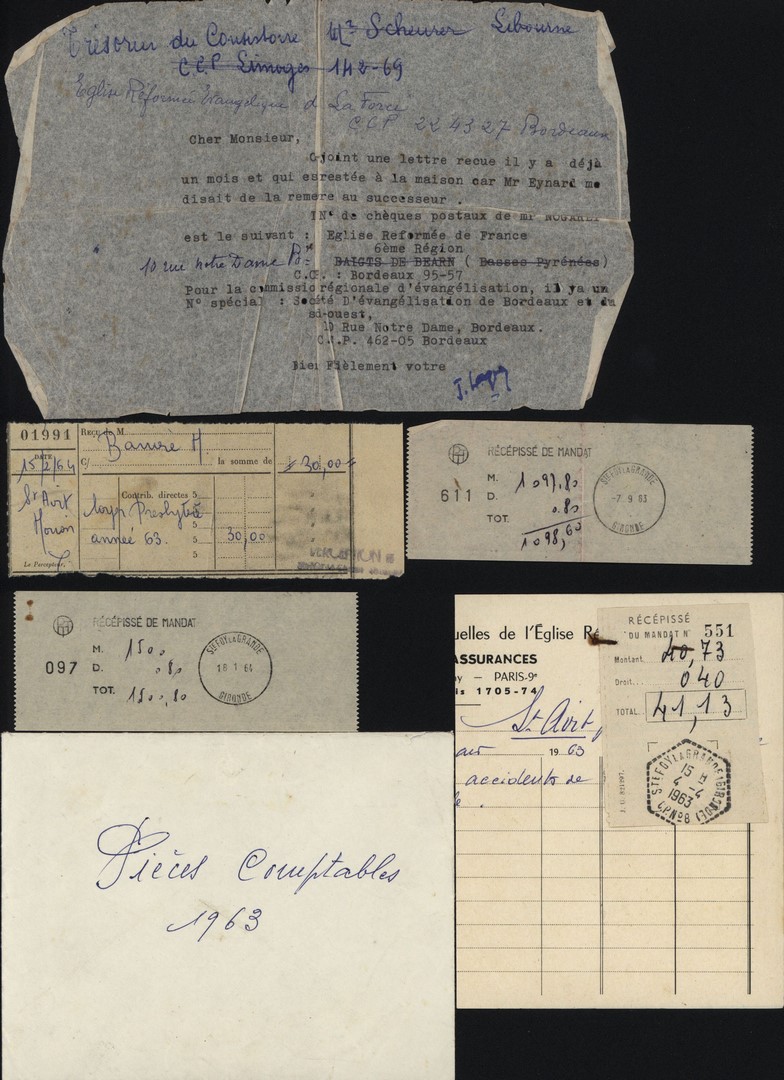 Trésorier du Consistoire Mr Scheurer Libourne
CCP Limoges 142-69
Eglise Réformée Evangélique d La Force
CCP 224327 Bordeaux
Cher Monsieur,
Cjoint une lettre recue il y a déjà
un mois et qui esrestée à la maison car Mr Eynard me
disait de la remere au successeur .
N° de chèques postaux de mr NOGARET
est le suivant : Eglise Reformée de France
6ème Région
10 rue Notre Dame Bx
BAIGTS DE BEARN ( Basses Pyrénées)
C.C. : Bordeaux 95-57
Pour la commissio régionale d'évangélisation, il ya un
N° spécial : Socété D'évangélisation de Bordeaux et du
sd-ouest,
10 Rue Notre Dame, Bordeaux.
C.C.P. 462-05 Bordeaux
Bien Fièlement votre
01991
Reçu de M.
Barrière H.
DATE
15/2/64
C/
la somme de
= 30,00 =
St Avit
Contrib. directes 5
loyer Presbytère
5
année 63.
5
30,00
5
Le Percepteur,
PERCEPTION
RÉCÉPISSÉ DE MANDAT
611
M.
1 097,80
D.
0.80
TOT.
1098,60
STE FOY LA GRANDE
-7. 9 63
GIRONDE
RÉCÉPISSÉ DE MANDAT
097
M.
1500
D.
.80
TOT.
1500,80
STE FOY LA GRANDE
18 1 64
GIRONDE
uelles de l'Église Ré
ASSURANCES
oy — PARIS-9e
is 1705-74
St Avit
1963
accidents de
RÉCÉPISSÉ
DU MANDAT N° 551
Montant.
40,73
Droit..
040
TOTAL..
41,13
STE FOY LA GRANDE (GIRONDE)
15 H
4 -4
1963
C.P. N°8
Pièces Comptables
1963